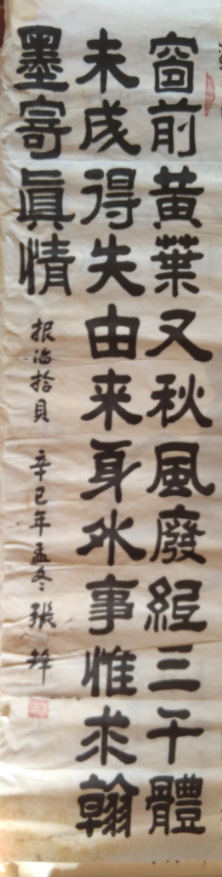 窗前黃葉又秋風廢紙三千體
未成得失由来身外事惟求翰
墨寄真情
报海拾貝 辛巳年孟冬 張鋒